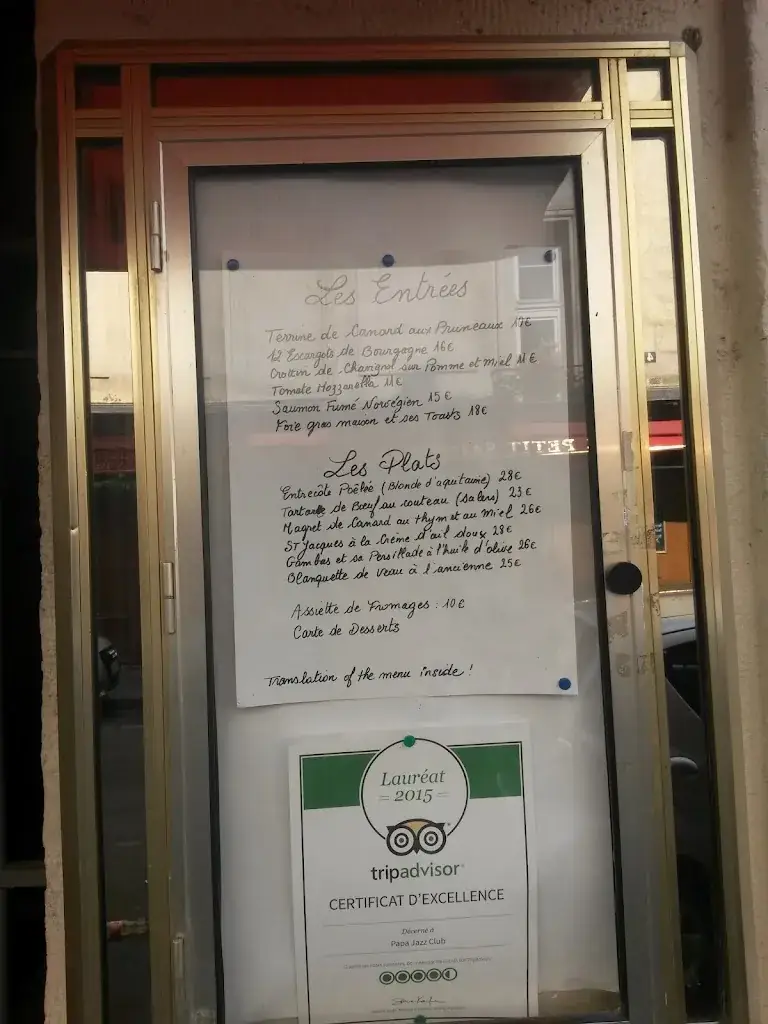 Les Entrées
Terrine de Canard aux Pruneaux
12 Escargots de Bourgogne 16€
Crottin de Chavignol sur Pomme et Miel 11€
Tomate Mozzarella 11€
Saumon Fumé Norvégien 15€
Foie gras maison et ses Toasts 18€
Les Plats
Entrecôte Poêlée (Blonde d'aquitaine) 28€
Tartare de Bœuf au couteau (Salers) 23€
Magret de Canard au thym et au Miel 26€
ST Jacques à la Crème d'ail doux 28€
Gambas et sa Persillade à l'huile d'olive 26€
Blanquette de Veau à l'ancienne 25€
Assiette de Fromages : 10€
Carte de Desserts
Translation of the menu inside !
PETIT
Lauréat
2015
tripadvisor
CERTIFICAT D'EXCELLENCE
Décerné à
Papa Jazz Club